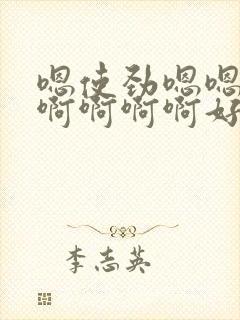 嗯使劲嗯嗯
啊啊啊啊好
李志英